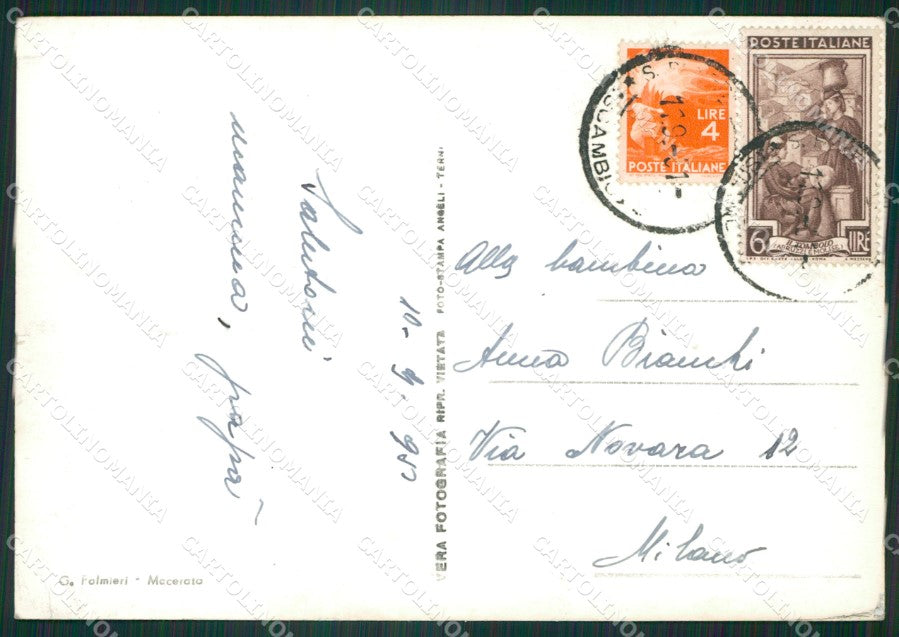 Salutoni
mamma, papà
10-9-951
VERA FOTOGRAFIA RIPR. VIETATA FOTO-STAMPA ANGELI - TERNI
G. Palmieri - Macerata
LIRE
4
POSTE ITALIANE
POSTE ITALIANE
IL TOMBOLO
(ABRUZZI E MOLISE)
6 LIRE
Alla bambina
Anna Bianchi
Via Novara 12
Milano
CARTOLINOMANIA